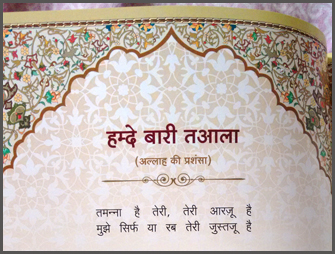 हम्दे बारी तआला
(अल्लाह की प्रशंसा)
तमन्ना है तेरी, तेरी आरज़ू है
मुझे सिर्फ या रब तेरी जुस्तजू है